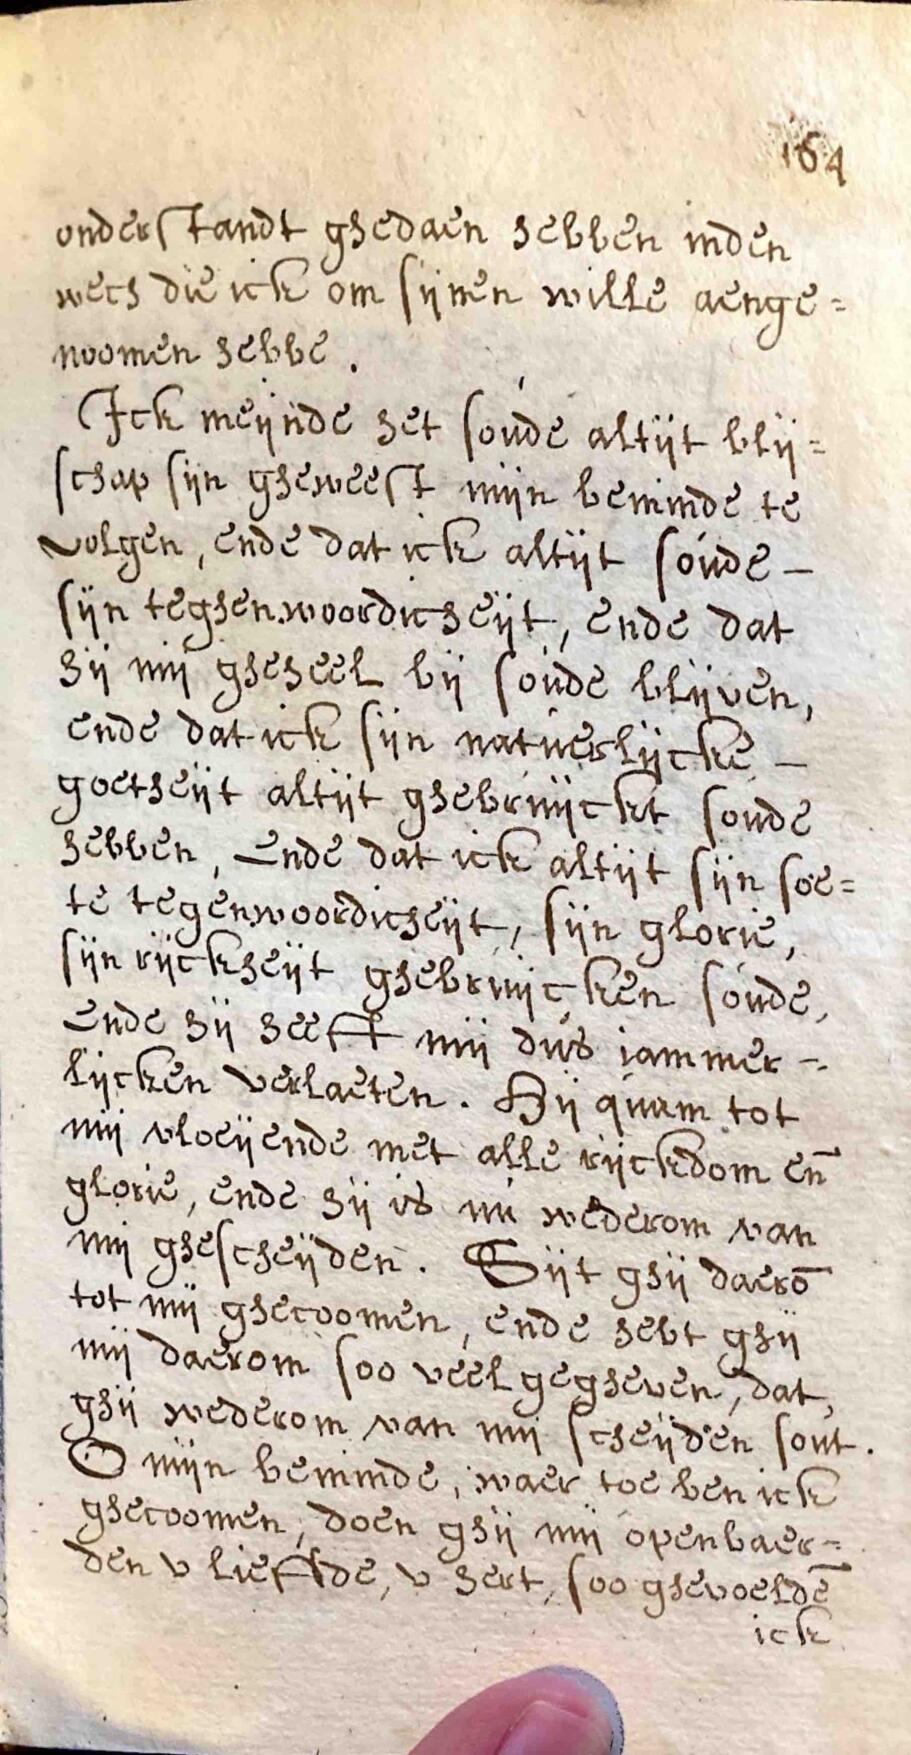 164
onderstandt ghedaen hebben inden
wech die ick om sijnen wille aenge=
noomen hebbe.
Ick meijnde het soude altijt blij=
schap sijn gheweest mijn beminde te
volgen, ende dat ick altijt soude –
sijn teghenwoordicheijt, ende dat
hij mij gheheel bij soude blijven,
ende dat ick sijn natuerlijcke –
goetheijt altijt ghebruijckt soude
hebben, Ende dat ick altijt sijn soe=
te tegenwoordicheijt, sijn glorie,
sijn rijckheijt ghebruijcken soude,
Ende hij heeft mij dus iammer-
lijcken verlaeten. Hij quam tot
mij vloeijende met alle rijckdom en̄
glorie, ende hij is nu wederom van
mij ghescheijden. Sijt ghij daerō
tot mij ghecoomen, ende hebt ghij
mij daerom soo veel gegheven, dat
ghij wederom van mij scheijden sout.
O mijn beminde, waer toe ben ick
ghecoomen, doen ghij mij openbaer=
den v lieffde, v hert, soo ghevoeldē
ick